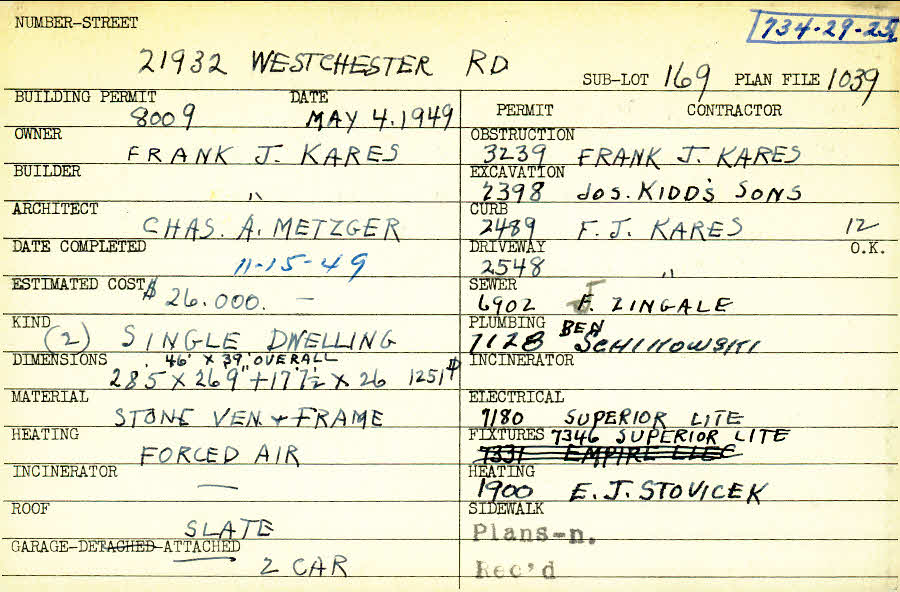 NUMBER-STREET
734-29-25
21932 WESTCHESTER RD
SUB-LOT 169 PLAN FILE 1039
BUILDING PERMIT DATE
8009 MAY 4.1949
OWNER
FRANK J. KARES
BUILDER
"
ARCHITECT
CHAS. A. METZGER
DATE COMPLETED
11-15-49
ESTIMATED COST $ 26.000. —
KIND
(2) SINGLE DWELLING
DIMENSIONS 46' X 39' OVERALL
28'5 X 26'9" + 17'7½ X 26 1251
MATERIAL
STONE VEN. + FRAME
HEATING
FORCED AIR
INCINERATOR
—
ROOF
SLATE
GARAGE-DETACHED-ATTACHED
2 CAR
PERMIT CONTRACTOR
OBSTRUCTION
3239 FRANK J. KARES
EXCAVATION
2398 JOS. KIDD'S SONS
CURB
2489 F. J. KARES 12
DRIVEWAY O.K.
2548 "
SEWER
6902 F. ZINGALE
PLUMBING BEN
7128
INCINERATOR
ELECTRICAL
7180 SUPERIOR LITE
FIXTURES 7346 SUPERIOR LITE
7331 EMPIRE ELEC
HEATING
1900 E. J. STOVICEK
SIDEWALK
Plans-n.
Rec'd